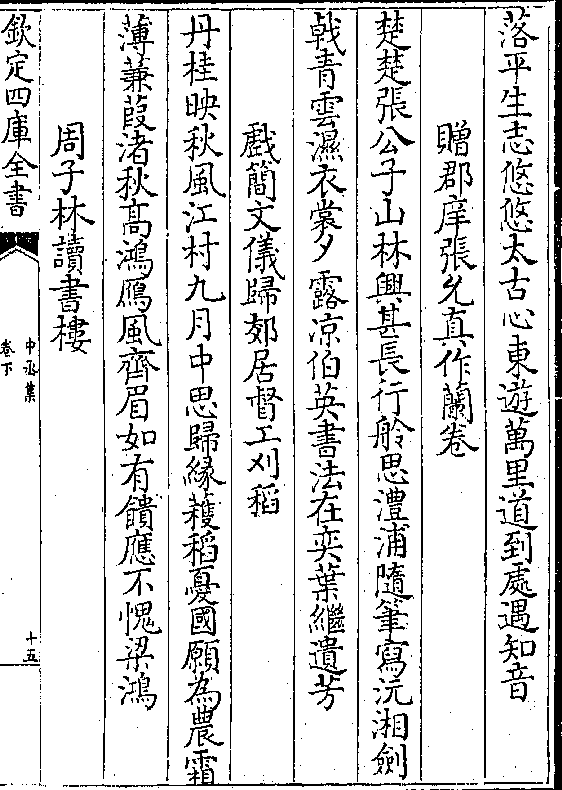 落平生志悠悠太古心東遊萬里道到處遇知音
贈郡庠張允真作蘭卷
楚楚張公子山林興甚長行舲思澧浦隨筆寫沅湘劍
戟青雲濕衣裳夕露凉伯英書法在奕葉繼遺芳
戲簡文儀歸郊居督工刈稻
丹桂映秋風江村九月中思歸緣穫稻憂國願為農霜
薄蒹葭渚秋高鴻鴈風齊眉如有饋應不愧梁鴻
周子林讀書樓
欽定四庫全書
中丞集
卷下
十五